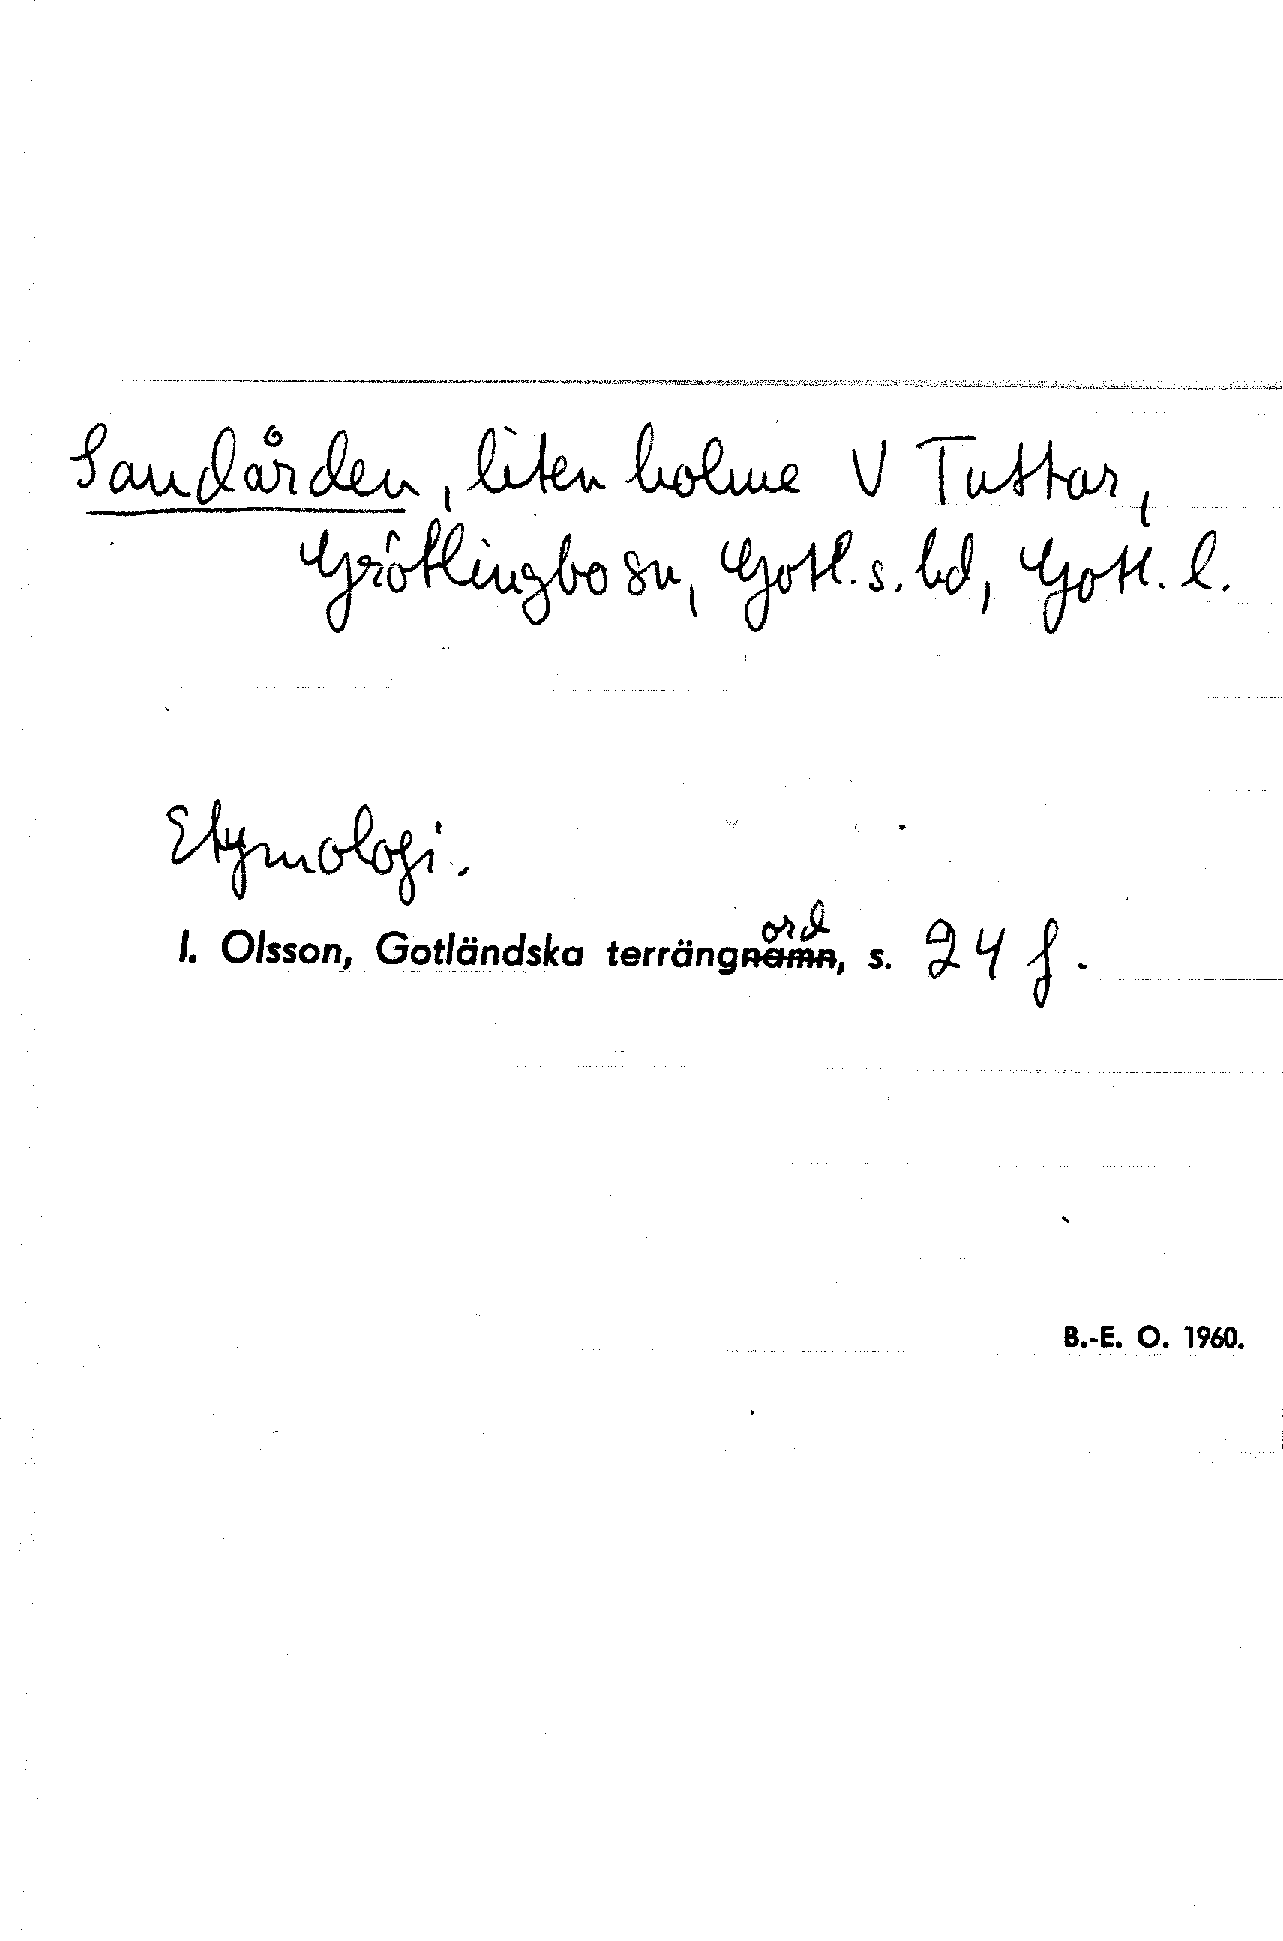 Sandården, liten holme V Tuttar,
Grötlingbo sn, Gotl. s. hd, Gotl. l.
Etymologi.
I. Olsson, Gotländska terrängnamn ord, s. 24 f.
B.-E. O. 1960.